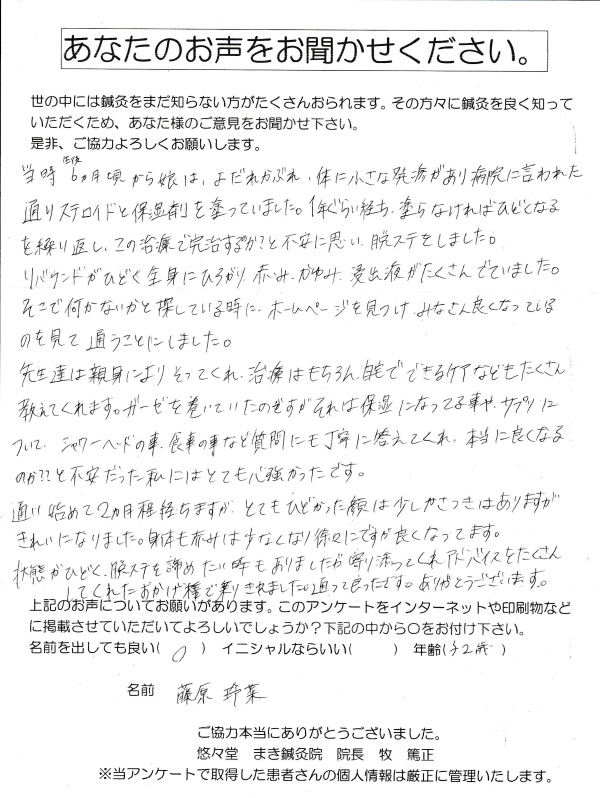 あなたのお声をお聞かせください。
世の中には鍼灸をまだ知らない方がたくさんおられます。その方々に鍼灸を良く知って
いただくため、あなた様のご意見をお聞かせ下さい。
是非、ご協力よろしくお願いします。
当時生後6ヵ月頃から娘は、よだれかぶれ、体に小さな発疹があり病院に言われた
通りステロイドと保湿剤を塗っていました。1年ぐらい経ち、塗らなければひどくなる
を繰り返し、この治療で完治するのか?と不安に思い、脱ステをしました。
リバウンドがひどく全身にひろがり、赤み、かゆみ、浸出液がたくさんでていました。
そこで何かないかと探している時に、ホームページを見つけ、みなさん良くなっている
のを見て通うことにしました。
先生達は親身によりそってくれ、治療はもちろん、自宅でできるケアなどもたくさん
教えてくれます。ガーゼを巻いていたのですがそれは保湿になってる事や、サプリに
ついて、シャワーヘッドの事、食事の事など質問にも丁寧に答えてくれ、本当に良くなる
のか??と不安だった私にはとても心強かったです。
通い始めて2ヵ月程経ちますが、とてもひどかった顔は少しかさつきはありますが
きれいになりました。身体も赤みは少なくなり徐々にですが良くなってます。
状態がひどく、脱ステを諦めたい時もありましたが寄り添ってくれアドバイスをたくさん
してくれたおかげ様で乗りきれました。通って良かったです。ありがとうございます。
上記のお声についてお願いがあります。このアンケートをインターネットや印刷物など
に掲載させていただいてよろしいでしょうか?下記の中から○をお付け下さい。
名前を出しても良い( ○ ) イニシャルならいい( ) 年齢(子2歳)
名前 藤原 玲菜
ご協力本当にありがとうございました。
悠々堂 まき鍼灸院 院長 牧 篤正
※当アンケートで取得した患者さんの個人情報は厳正に管理いたします。